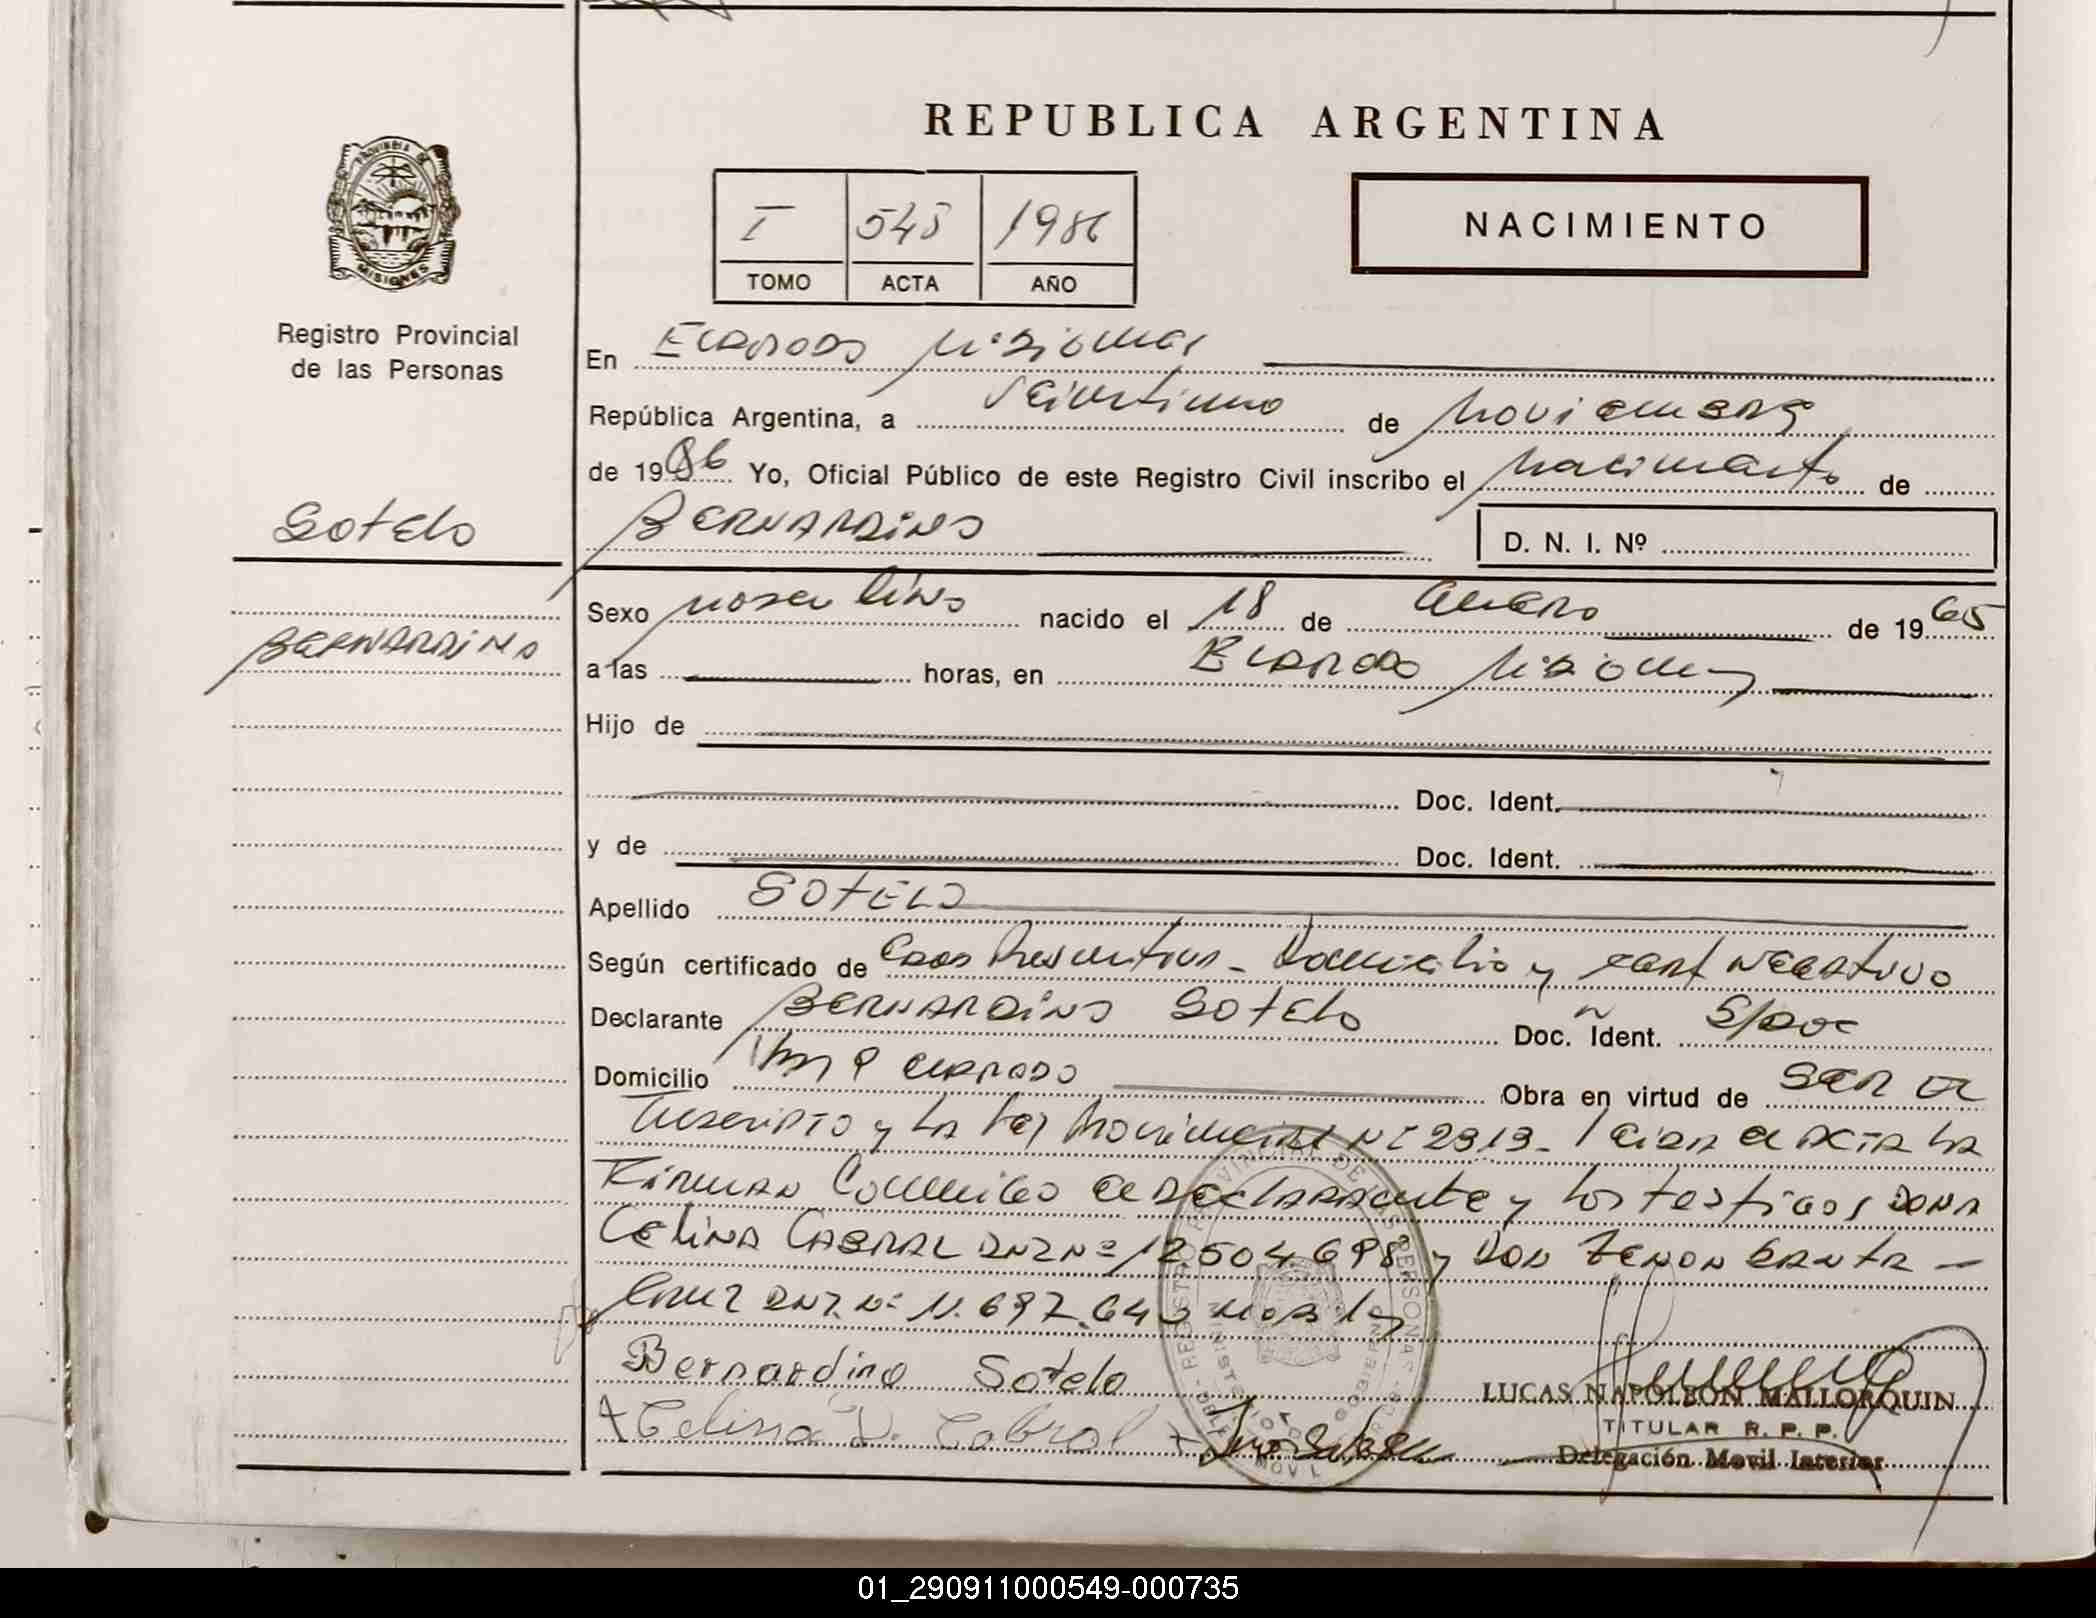 REPUBLICA ARGENTINA
PROVINCIA DE
MISIONES
Registro Provincial
de las Personas
I 545 1986
TOMO ACTA AÑO
NACIMIENTO
En Eldorado Misiones
República Argentina, a veintiuno de noviembre
de 1986 Yo, Oficial Público de este Registro Civil inscribo el nacimiento de
Sotelo
BERNARDINO
D. N. I. Nº
BERNARDINO
Sexo masculino nacido el 18 de enero de 1965
a las horas, en Eldorado Misiones
Hijo de
Doc. Ident.
y de Doc. Ident.
Apellido SOTELO
Según certificado de Domicilio y cert NEGATIVO
Declarante BERNARDINO SOTELO Doc. Ident. S/Doc
Domicilio Eldorado Obra en virtud de SER EL
Inscripto y LA Ley Provincial Nº 2313- Leida el ACTA LA
Firman Conmigo el DEclarante y los testigos DOÑA
CELINA CABRAL DNI Nº 12504698 y DON ZENON SANTA -
Cruz DNI. Nº 11.697.640
Bernardino Sotelo
Celina V. Cabral
REGISTRO PROVINCIAL DE LAS PERSONAS
LUCAS NAPOLEON MALLORQUIN
TITULAR R. P. P.
Delegación Movil Interior
01_290911000549-000735